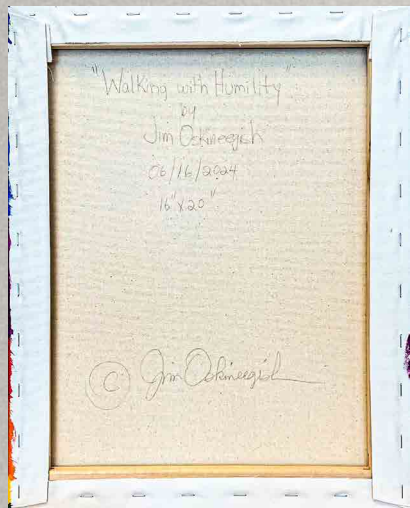 "Walking with Humility"
by
Jim Oskineegish
06/16/2024
16"x20"
© Jim Oskineegish